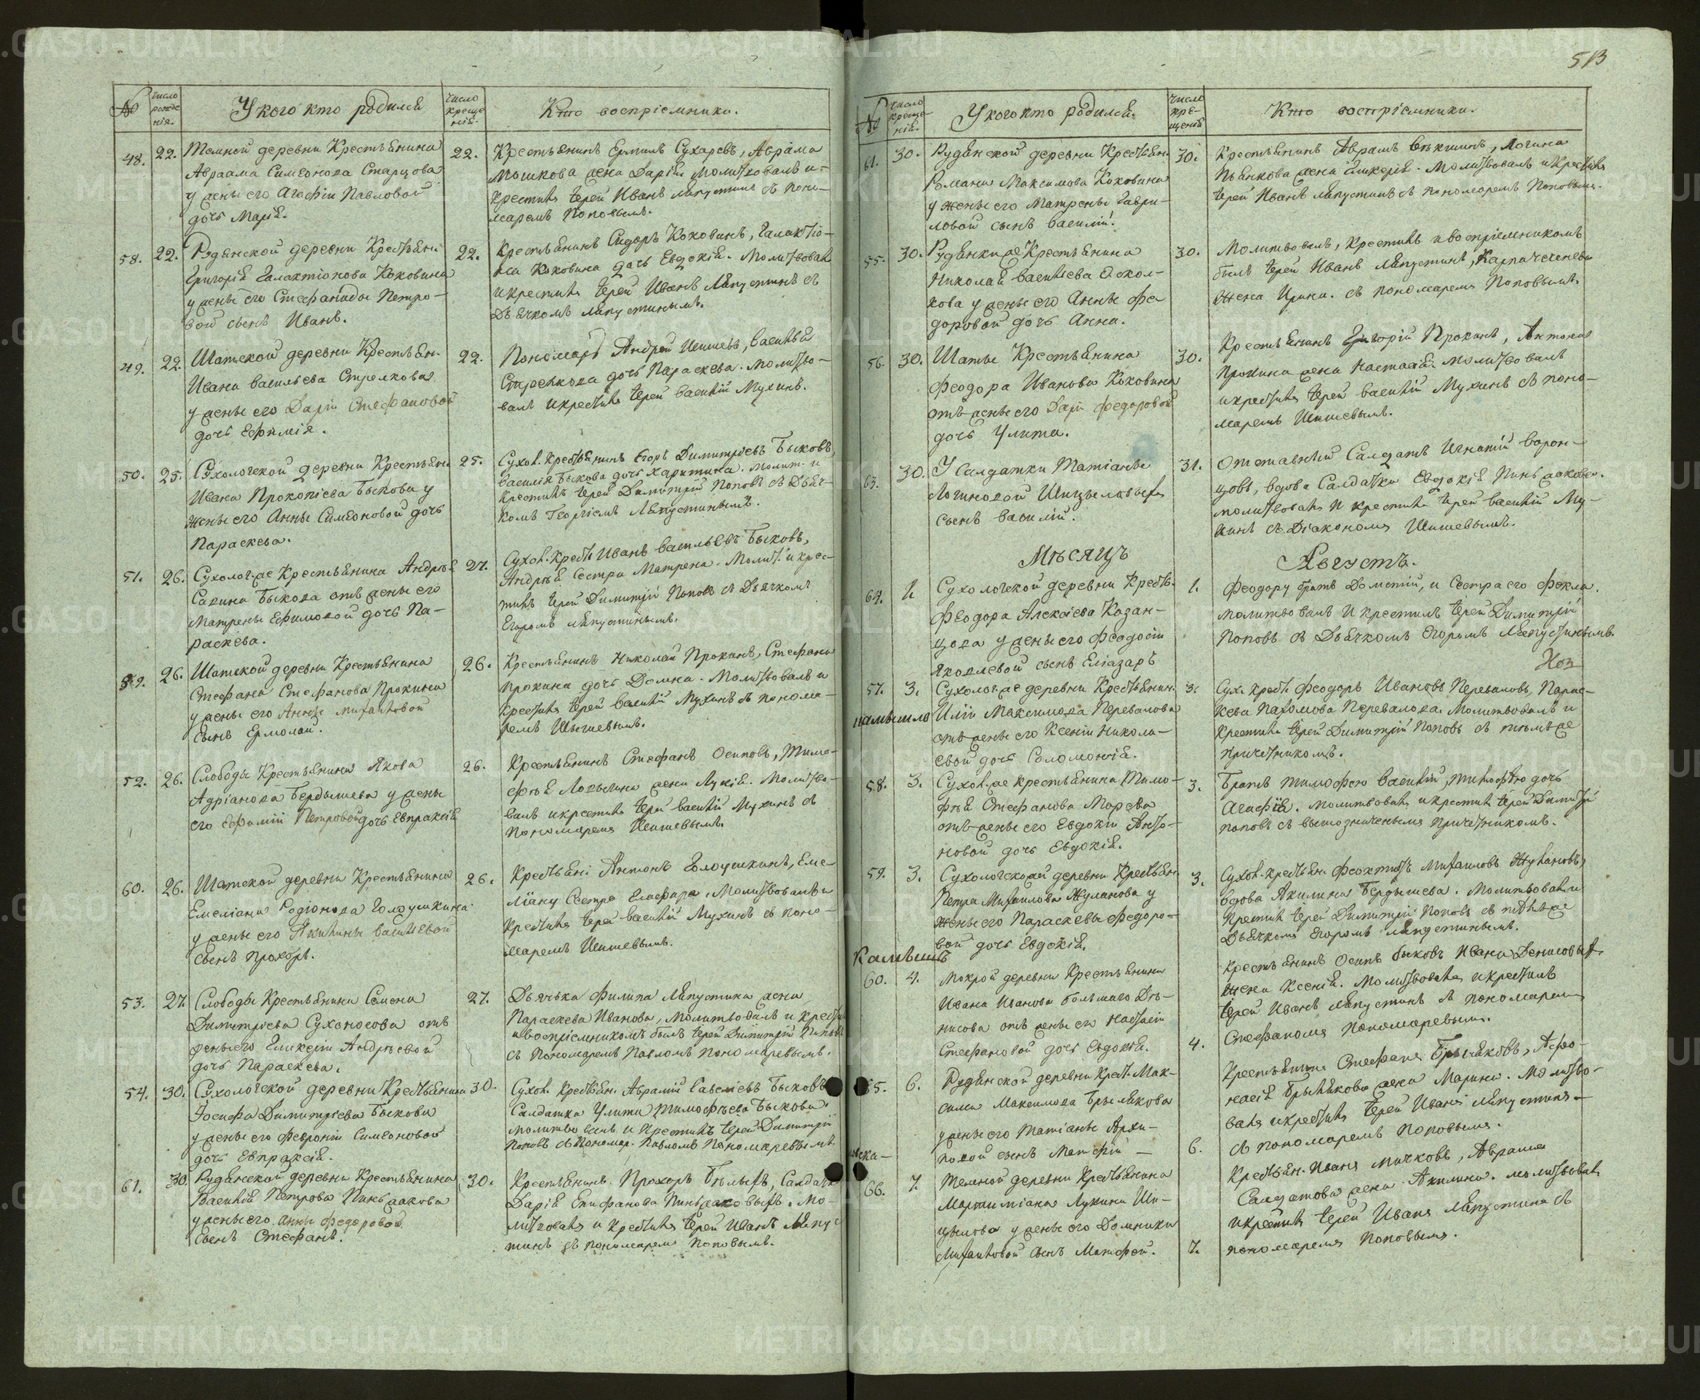 513
№ Число рожде нія. У кого кто родился Число креще нія. Кто воспріемники.
48. 22. Темной деревни Крестьянина
Авраама Симеонова Старцова
у жены его Агафіи Павловой
дочь Марія.
22. Крестьянинъ Ермилъ Сухаревъ, Авраама
Мошкова жена Дарія. Молитвовалъ и
крестилъ Іерей Иванъ Ляпустинъ съ поно-
маремъ Поповымъ.
58. 22. Рудянской деревни Крестьян.
Григорія Галактіонова Коковина
у жены его Стефаниды Петро-
вой сынъ Иванъ.
22. Крестьянинъ Сидоръ Коковинъ, Галактіо-
на Коковина дочь Евдокія. Молитвовалъ
и крестилъ Іерей Иванъ Ляпустинъ съ
Дьячкомъ Ляпустинымъ.
49. 22 Шатской деревни Крестьян.
Ивана Васильева Стрелкова
у жены его Дарьи Стефановой
дочь Ефимія.
22. Пономарь Андрей Шишевъ, Василья
дочь Параскева. Молитво-
валъ и крестилъ Іерей Василій Мухинъ.
50. 25. Сухоложской деревни Крестьян.
Ивана Прокопіева Быкова у
жены его Анны Симеоновой дочь
Параскева.
25. Сухол. Крестьянинъ Егоръ Димитріевъ Быковъ,
Василія Быкова дочь Харитина. Молит. и
крестилъ Іерей Димитрій Поповъ съ Дьяч-
комъ Георгіемъ Ляпустинымъ.
51. 26. Сухолож. Крестьянина Андрея
Савина Быкова отъ жены его
Матрены Ефимовой дочь Па-
раскева.
27. Сухол. Крест. Иванъ Васильевъ Быковъ,
Андрея сестра Матрена. Молит. и крес-
тилъ Іерей Димитрій Поповъ съ Дьячкомъ
Егоромъ Ляпустинымъ.
59. 26. Шатской деревни Крестьянина
Стефана Стефанова Прокина
у жены его Анны Михайловой
сынъ Ермолай.
26. Крестьянинъ Николай Прокинъ, Стефана
Прокина дочь Домна. Молитвовалъ и
крестилъ Іерей Василій Мухинъ съ понома-
ремъ Шишевымъ.
52. 26. Слободы Крестьянина Якова
Адріанова Бердышева у жены
его Ефиміи Петровой дочь Евпраксія
26. Крестьянинъ Стефанъ Осиповъ, Тимо-
фея жена Лукія. Молитво-
валъ и крестилъ Іерей Василій Мухинъ съ
Пономаремъ Шишевымъ.
60. 26. Шатской деревни Крестьянина
Емеліана Родіонова Голоушкина
у жены его Акилины Васильевой
сынъ Прохоръ.
26. Крестьян. Антонъ Голоушкинъ, Еме-
ліану сестра Елефира. Молитвовалъ и
крестилъ Іерей Василій Мухинъ съ поно-
маремъ Шишевымъ.
53. 27 Слободы Крестьянина Семена
Димитріева Сухоносова отъ
жены его Гликеріи Андреевой
дочь Параскева.
27. Дьячька Филипа Ляпустина жена
Параскева Иванова, Молитвовалъ и крести
и воспріемникомъ былъ Іерей Димитрій Попов
съ Пономаремъ Павломъ Пономаревымъ.
54. 30. Сухоложской деревни Крестьянина
Іосифа Димитріева Быкова
у жены его Февроніи Симеоновой
дочь Евпраксія.
30. Сухол. Крестьян. Авраамій Савельевъ Быковъ
Салдатка Улита Тимофеева Быкова
молитвовалъ и крестилъ Іерей Димитрій
Поповъ съ Пономар. Павломъ Пономаревымъ.
61. 30 Рудянской деревни Крестьянина
Василія Петрова Пиньжакова
у жены его Анны Федоровой
сынъ Стефанъ.
30. Крестьянинъ Прохоръ Белыхъ, Салдатк
Дарія Епифанова Пиньжаковыхъ. Мо-
литвовалъ и крестилъ Іерей Иванъ Ляпус
тинъ съ пономаремъ Поповымъ.
№ Число креще нія. У кого кто родился. Число кре- щенія Кто воспріемники.
61. 30. Рудянской деревни Крестьян
Романа Максимова Коковина
у жены его Матрены Гаври-
ловой сынъ Василій.
30. Крестьянинъ Абрамъ, Логина
Пьянкова жена Гликерія. Молитвовалъ и крестилъ
Іерей Иванъ Ляпустинъ съ пономаремъ Поповымъ.
55. 30. Рудянки Крестьянина
Николая Васильева Сокол-
кова у жены его Анны Фе-
доровой дочь Анна.
30. Молитвовалъ, крестилъ и воспріемникомъ
былъ Іерей Иванъ Ляпустинъ,
жена Ирина. съ пономаремъ Поповымъ.
56. 30. Шаты Крестьянина
Феодора Иванова Коковина
отъ жены его Дарьи Федоровой
дочь Улита.
30. Крестьянинъ Григорій Прокинъ, Антона
Прокина жена Настасія. Молитвовалъ
и крестилъ Іерей Василій Мухинъ съ поно-
маремъ Шишевымъ.
63. 30. У Салдатки Татіаны
Логиновой Шицыловыхъ
сынъ Василій.
31. Отставный Салдатъ Игнатій Ворон-
цовъ, вдова Салдатка Евдокія Пиньжакова.
молитвовалъ и крестилъ Іерей Василій Му-
хинъ съ Діакономъ Шишевымъ.
Мѣсяцъ Августъ.
64. 1. Сухоложской деревни Крест.
Феодора Алексіева Казан-
цова у жены его Феодосіи
Яковлевой сынъ Еліазаръ
1. Феодору братъ Дометій, и Сестра его Фекла.
молитвовалъ и крестилъ Іерей Димитрій
Поповъ съ Дьячкомъ Егоромъ Ляпустинымъ.
57. 3. Сухолож. деревни Крестьянин.
Иліи Максимова Перевалова
отъ жены его Ксеніи Никола-
евой дочь Соломонія.
3. Сух. Крест. Феодоръ Ивановъ Переваловъ, Парас-
кева Пахомова Перевалова. Молитвовалъ и
крестилъ Іерей Димитрій Поповъ съ темъже
причетникомъ.
58. 3. Сухол. крестьянина Тимо-
фея Стефанова Морева
отъ жены его Евдокіи Анто-
новой дочь Евдокія.
3. Братъ Тимофею Василій, Тимофею дочь
Агафія. молитвовалъ и крестилъ Іерей Димитрій
Поповъ съ вышезначенымъ Причетникомъ.
59. 3. Сухоложской деревни Крестьян
Петра Михаилова Жуланова у
жены его Параскевы Федоро-
вой дочь Евдокія.
3. Сухол. крестьян. Феоктистъ Михаиловъ Жулановъ,
вдова Акилина Бердышева. Молитвовалъ и
крестилъ Іерей Димитрій Поповъ съ темъже
Дьячкомъ Егоромъ Ляпустинымъ.
60. 4. Мокрой деревни Крестьянина
Ивана Иванова большаго Де-
нисова отъ жены его Настасіи
Стефановой дочь Евдокія.
4. Крестьянинъ Осипъ Быковъ Ивана Денисовыхъ
жена Ксенія. Молитвовалъ и крестилъ
Іерей Иванъ Ляпустинъ съ пономаремъ
Стефаномъ Пономаревымъ.
65. 6. Рудянской деревни Крест. Мак-
сима Максимова Брылякова
у жены его Татіаны Архи-
повой сынъ Матфій —
6. Крестьянинъ Стефанъ Брыляковъ, Афо-
насія Брылякова жена Марина. Молитво-
валъ и крестилъ Іерей Иванъ Ляпустинъ
съ пономаремъ Поповымъ.
66. 7. Темной деревни Крестьянина
Мартиміана Лукина Ши-
цылова у жены его Домники
Михайловой сынъ Матфей.
7. Крестьян. Иванъ Мичковъ, Абрама
Салдатова жена Акилина. молитвовалъ
и крестилъ Іерей Иванъ Ляпустинъ съ
пономаремъ Поповымъ.
METRIKI.GASO-URAL.RU